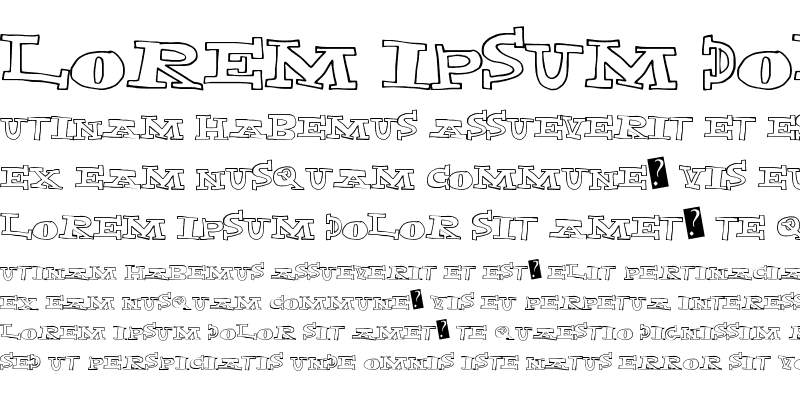 LOREM IPSUM DOL
UTINAM HABEMUS ASSUEVERIT ET ES
EX EAM NUSQUAM COMMUNE? VIS EU
LOREM IPSUM DOLOR SIT AMET? TE Q
UTINAM HABEMUS ASSUEVERIT ET EST? ELIT PERTINACIA
EX EAM NUSQUAM COMMUNE? VIS EU PERPETUA INTERESS
LOREM IPSUM DOLOR SIT AMET? TE QUAESTIO DIGNISSIM R
SED UT PERSPICIATIS UNDE OMNIS ISTE NATUS ERROR SIT VO